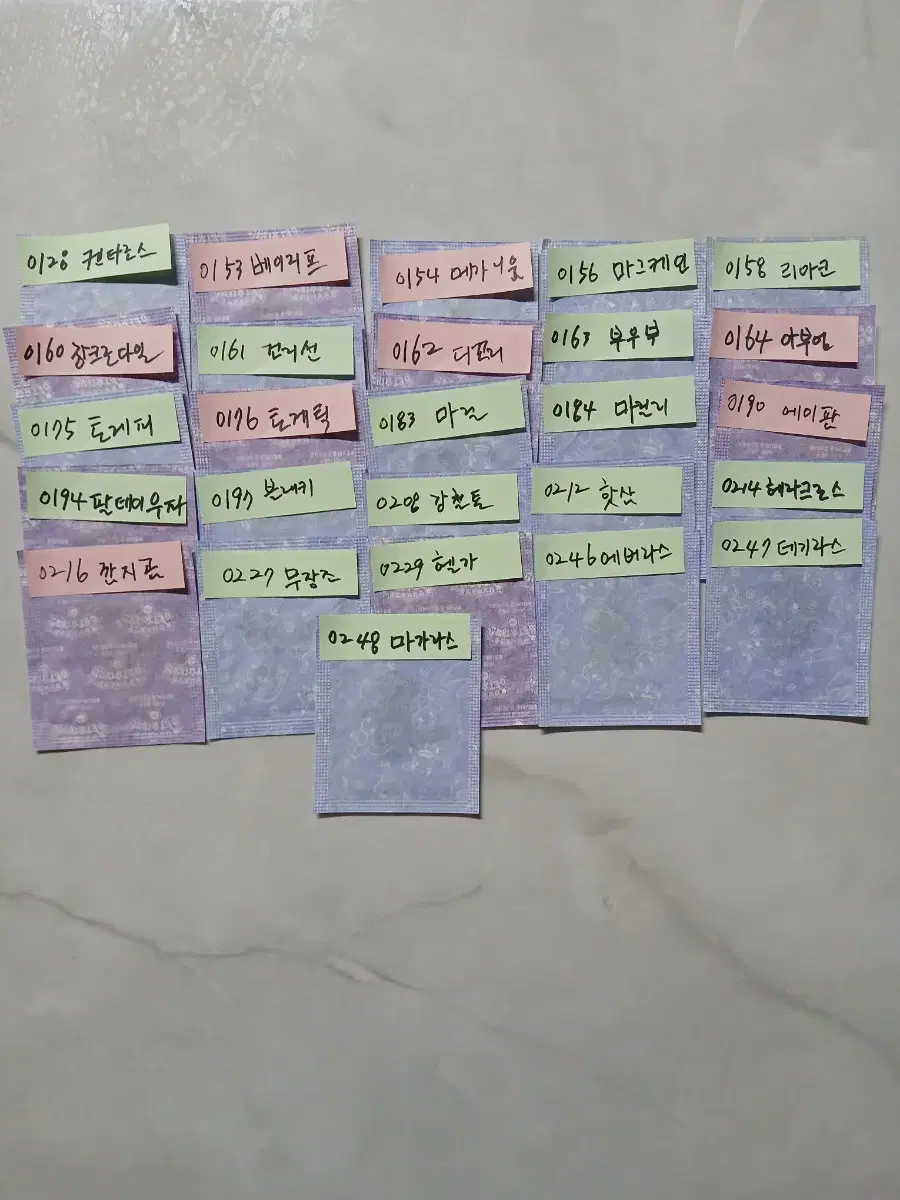 0128 켄타로스
0153 베이리프
0154 메가니움
0156 마그케인
0158 리아코
0160 장크로다일
0161 꼬리선
0162 다꼬리
0163 부우부
0164 야부엉
0175 토게피
0176 토게틱
0183 마릴
0184 마릴리
0190 에이팜
0194 팔데아우파
0197 블래키
0208 강철톤
0212 핫삼
0214 헤라크로스
0216 깜지곰
0227 무장조
0229 헬가
0246 에버라스
0247 데기라스
0248 마기라스